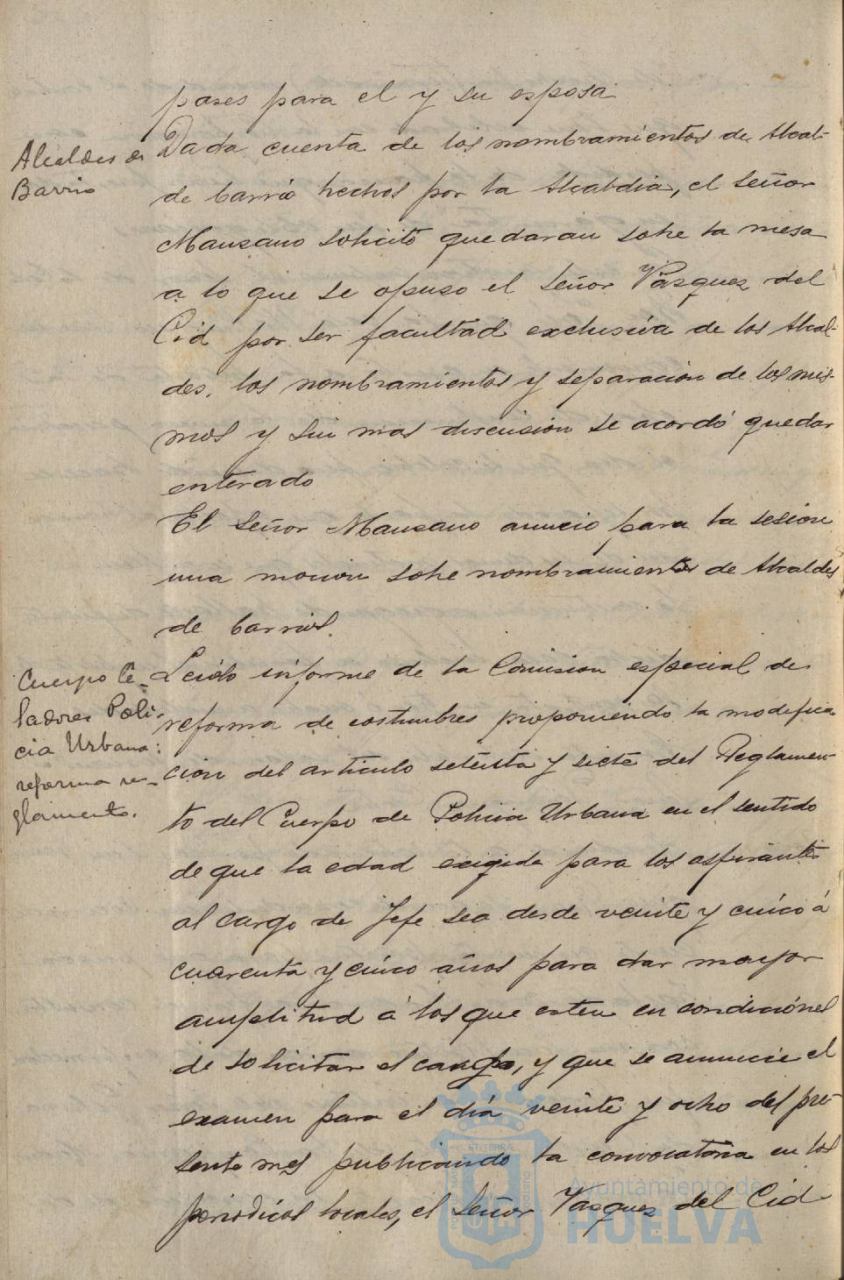 pases para el y su esposa
Alcaldes de
Barrio
Dada cuenta de los nombramientos de Alcal-
de barrio hechos por la Alcaldia, el Señor
Manzano solicitó quedaran sobre la mesa
a lo que se opuso el Señor Vazquez del
Cid por ser facultad exclusiva de los Alcal-
des, los nombramientos y separacion de los mis-
mos y sin mas discusion se acordó quedar
enterado
El Señor Manzano anució para la sesion
una mocion sobre nombramientos de Alcaldes
de barrios.
Cuerpo Ce-
ladores Poli-
cia Urbana:
reforma re-
glamento.
Leido informe de la Comision especial de
reforma de costumbres proponiendo la modifica
cion del articulo setenta y siete del Reglamen-
to del Cuerpo de Policia Urbana en el sentido
de que la edad exigida para los aspirantes
al cargo de Jefe sea desde veinte y cinco á
cuarenta y cinco años para dar mayor
amplitud á los que esten en condiciones
de solicitar el cargo, y que se anuncie el
examen para el día veinte y ocho del pre-
sente mes publicando la convocatoria en los
periodicos locales, el Señor Vazquez del Cid
Ayuntamiento de
HUELVA